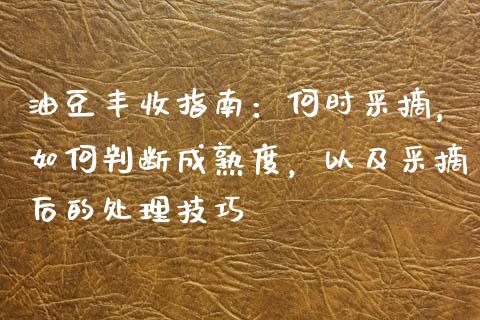 油豆丰收指南：何时采摘，
如何判断成熟度，以及采摘
后的处理技巧